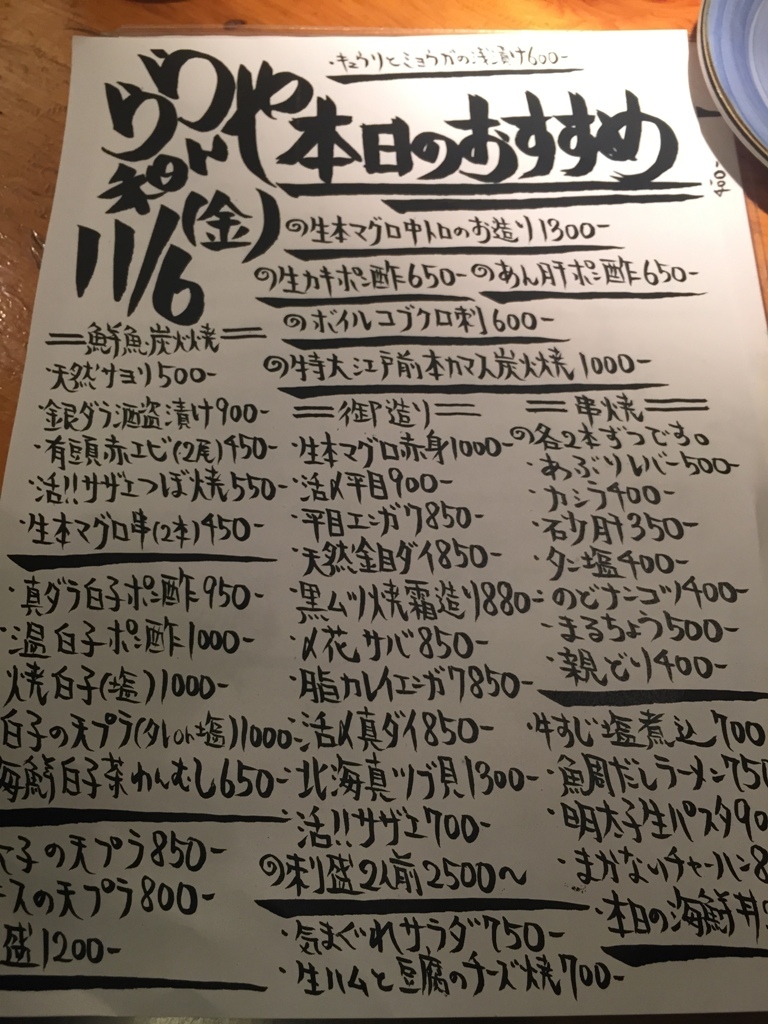 ・キュウリとミョウガの浅漬け600-
本日のおすすめ
11/6(金)
の生本マグロ中トロのお造り1300-
の生カキポン酢650- のあん肝ポン酢650-
のボイルコブクロ刺600-
の特大江戸前本カマス炭火焼1000-
=鮮魚炭火焼=
・天然サヨリ500-
・銀ダラ酒盗漬け900-
・有頭赤エビ(2尾)450-
・活!!サザエつぼ焼550-
・生本マグロ串(2本)450-
・真ダラ白子ポン酢950-
・温白子ポン酢1000-
焼白子(塩)1000-
白子の天プラ(タレor塩)1000-
海鮮白子茶わんむし650-
子の天プラ850-
キスの天プラ800-
盛1200-
=御造り=
・生本マグロ赤身1000-
・活〆平目900-
・平目エンガワ850-
・天然金目ダイ850-
・黒ムツ焼霜造り880-
・〆花サバ850-
・脂カレイエンガワ850-
・活〆真ダイ850-
・北海真ツブ貝1300-
・活!!サザエ700-
の刺盛2人前2500〜
・気まぐれサラダ750-
・生ハムと豆腐のチーズ焼700-
=串焼=
の各2本ずつです。
・あぶりレバー500-
・カシラ400-
・砂肝350-
・タン塩400-
・のどナンコツ400-
・まるちょう500-
・親どり400-
・牛すじ塩煮込700
・魚周だしラーメン750
・明太子生パスタ90
・まかないチャーハン8
・本日の海鮮丼